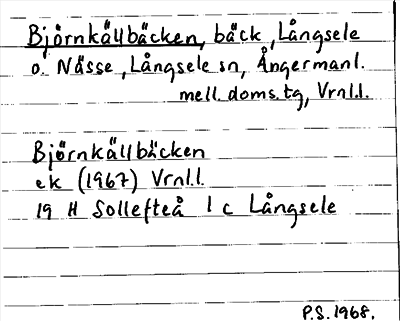 Björnkällbäcken, bäck, Långsele
o. Nässe, Långsele sn, Ångermanl.
mell. doms.tg, Vrnl.l.
Björnkällbäcken
ek (1967) Vrnl.l.
19 H Sollefteå 1 c Långsele
P.S. 1968.